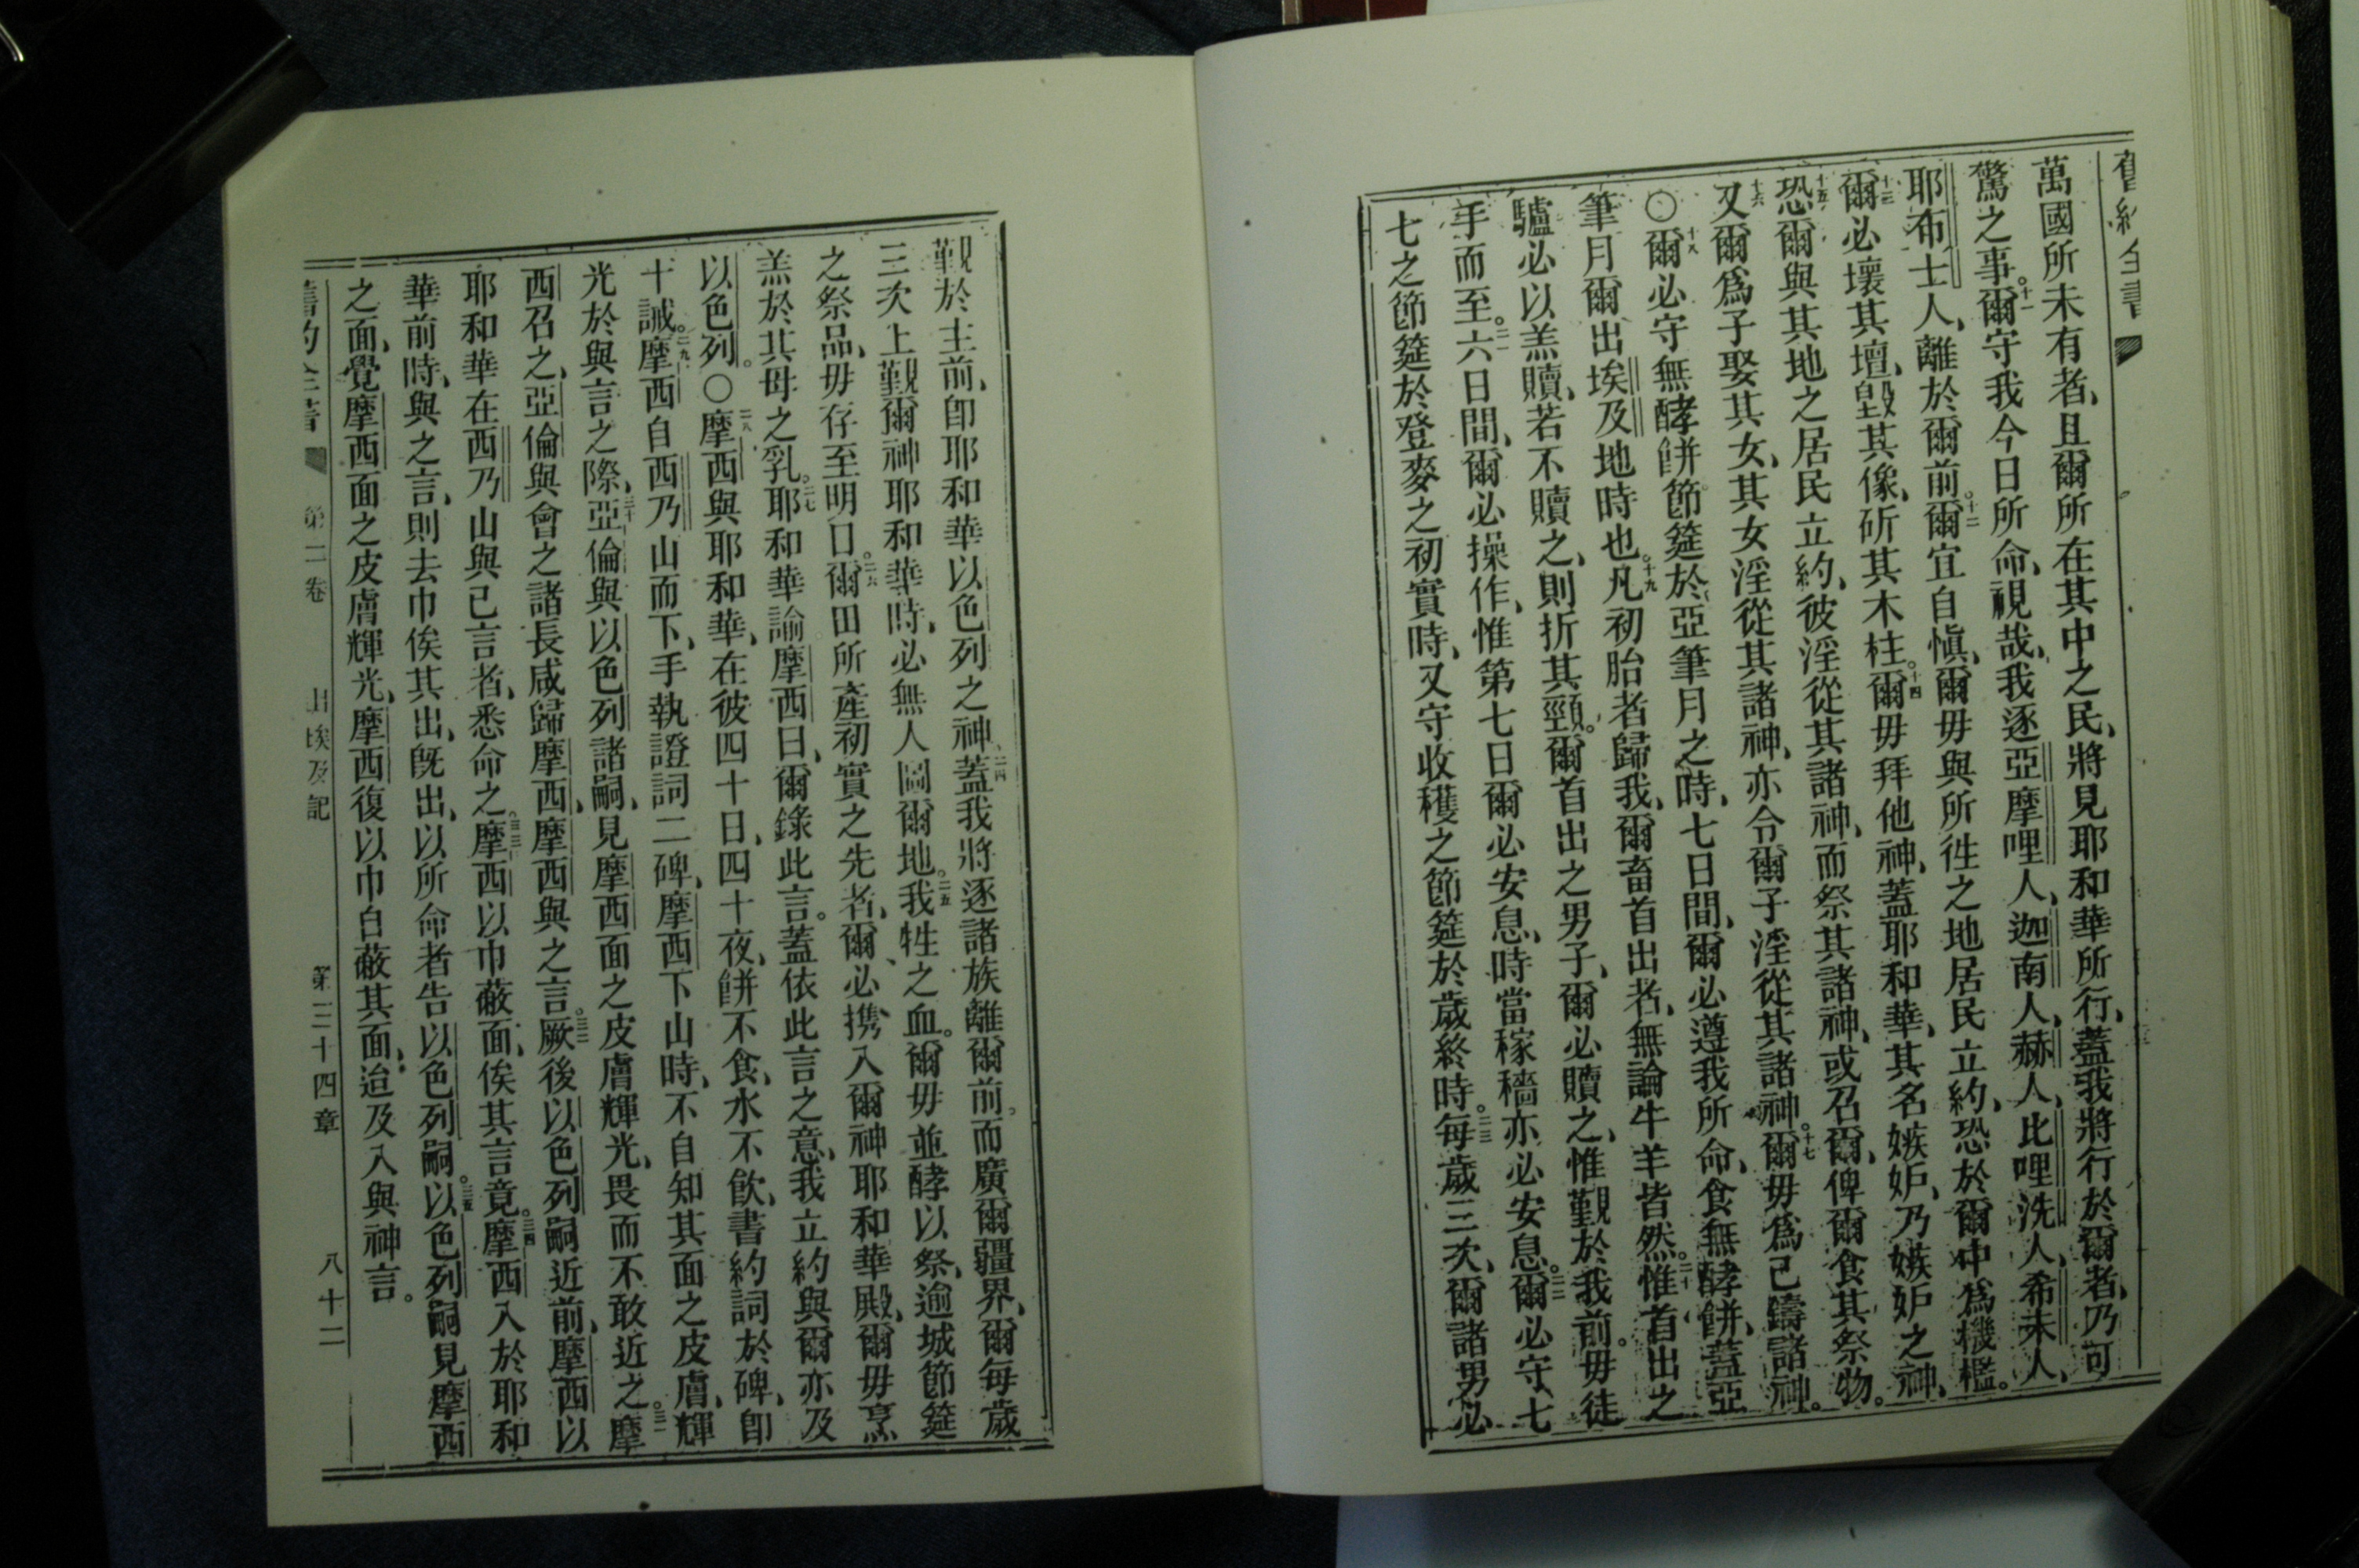 舊約全書
萬國所未有者、且爾所在其中之民、將見耶和華所行、蓋我將行於爾者、乃可
驚之事。十一爾守我今日所命、視哉、我逐亞摩哩人、迦南人、赫人、比哩洗人、希未人、
耶布士人、離於爾前。十二爾宜自愼、爾毋與所徃之地居民立約、恐於爾中爲機檻。
十三爾必壞其壇、毀其像、斫其木柱。十四爾毋拜他神、蓋耶和華、其名嫉妒、乃嫉妒之神、
十五恐爾與其地之居民立約、彼淫從其諸神、而祭其諸神、或召爾、俾爾食其祭物。
十六又爾爲子娶其女、其女淫從其諸神、亦令爾子淫從其諸神。十七爾毋爲己鑄諸神。
〇十八爾必守無酵餅節筵、於亞筆月之時、七日間、爾必遵我所命、食無酵餅、蓋亞
筆月爾出埃及地時也。十九凡初胎者歸我、爾畜首出者、無論牛羊皆然。二十惟首出之
驢必以羔贖、若不贖之、則折其頸。爾首出之男子、爾必贖之、惟覲於我前。毋徒
手而至。二一六日間、爾必操作、惟第七日爾必安息、時當稼穡亦必安息。二二爾必守七
七之節筵於登麥之初實時、又守收穫之節筵於歲終時。二三每歲三次、爾諸男必
覲於主前、卽耶和華以色列之神、二四蓋我將逐諸族離爾前。而廣爾疆界、爾每歲
三次上覲爾神耶和華時、必無人圖爾地。二五我牲之血。爾毋並酵以祭、逾城節筵
之祭品、毋存至明日。二六爾田所產初實之先者、爾必携入爾神耶和華殿、爾毋烹
羔於其母之乳。二七耶和華諭摩西曰、爾錄此言。蓋依此言之意、我立約與爾亦及
以色列。〇二八摩西與耶和華、在彼四十日、四十夜、餅不食、水不飮、書約詞於碑、卽
十誡。二九摩西自西乃山而下、手執證詞二碑、摩西下山時、不自知其面之皮膚、輝
光於與言之際、三十亞倫與以色列諸嗣、見摩西面之皮膚輝光、畏而不敢近之。三一摩
西召之、亞倫與會之諸長咸歸摩西、摩西與之言。三二厥後以色列嗣近前、摩西以
耶和華在西乃山與己言者、悉命之。三三摩西以巾蔽面、俟其言竟。三四摩西入於耶和
華前時、與之言、則去巾俟其出、旣出、以所命者告以色列嗣。三五以色列嗣見摩西
之面、覺摩西面之皮膚輝光、摩西復以巾自蔽其面、迨及入與神言。
舊約全書 第二卷 出埃及記 第三十四章 八十二